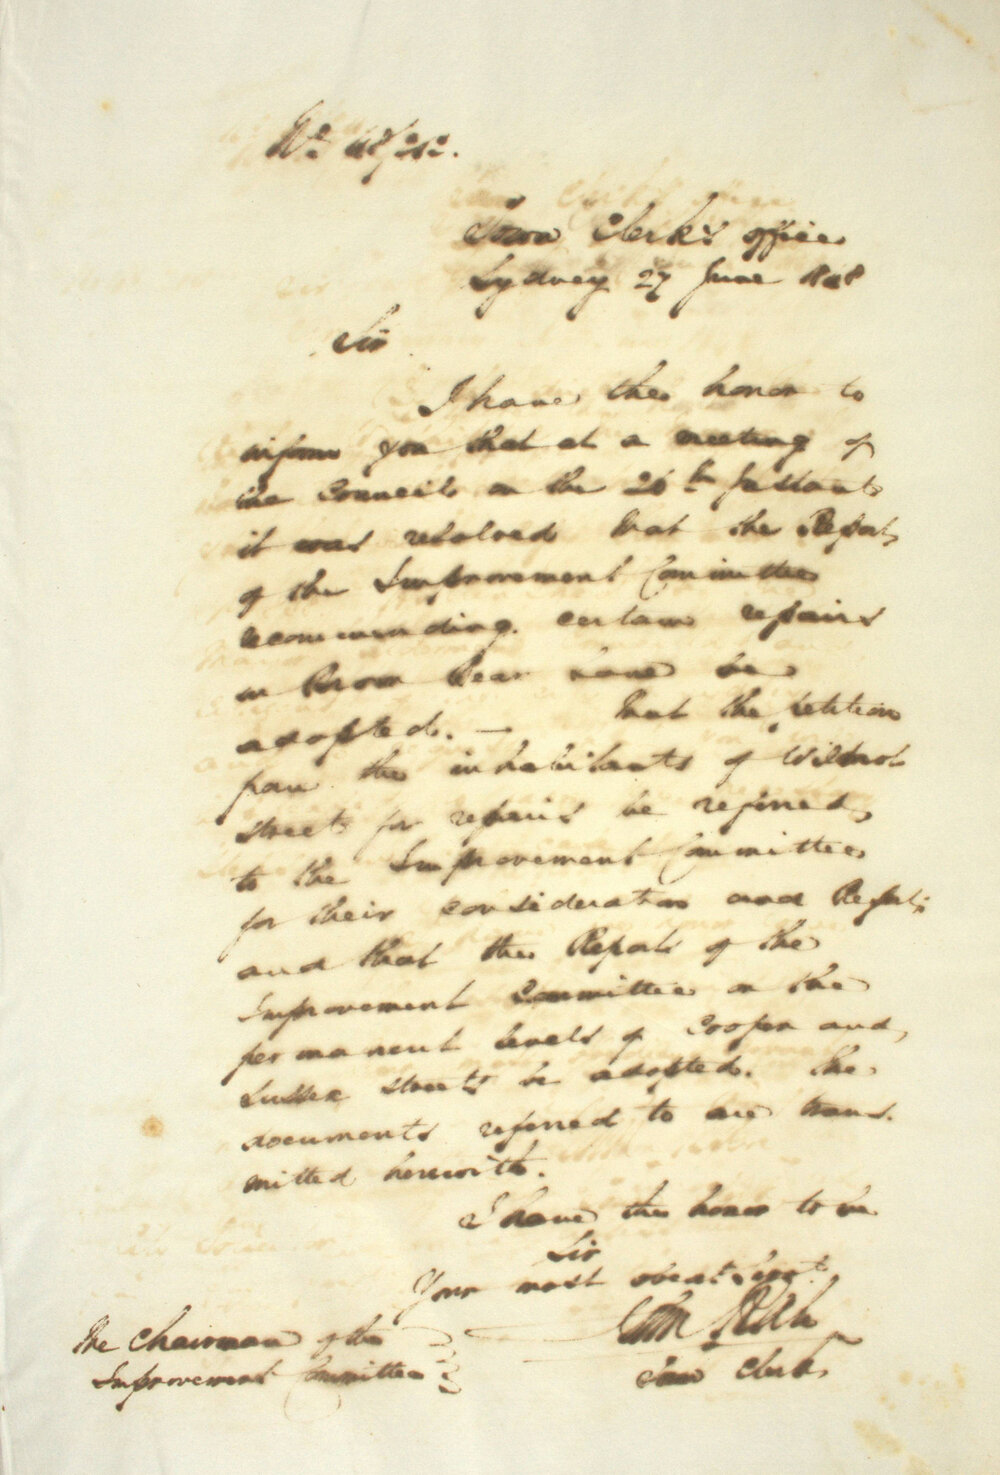 Town Clerk's Office
Sydney 27 June 1848
Sir
I have the honor to
inform you that at a meeting of
the Council on the 26th Instant
it was resolved that the Report
of the Improvement Committee
recommending certain repairs
in Brown Bear Lane be
adopted. — That the petition
from the inhabitants of
Street for repairs be referred
to the Improvement Committee
for their consideration and Report;
and that the Report of the
Improvement Committee on the
permanent levels of Cooper and
Sussex Streets be adopted. The
documents referred to are trans-
mitted herewith.
I have the honor to be
Sir
Your most obedt Servt
Town Clerk
The Chairman of the
Improvement Committee